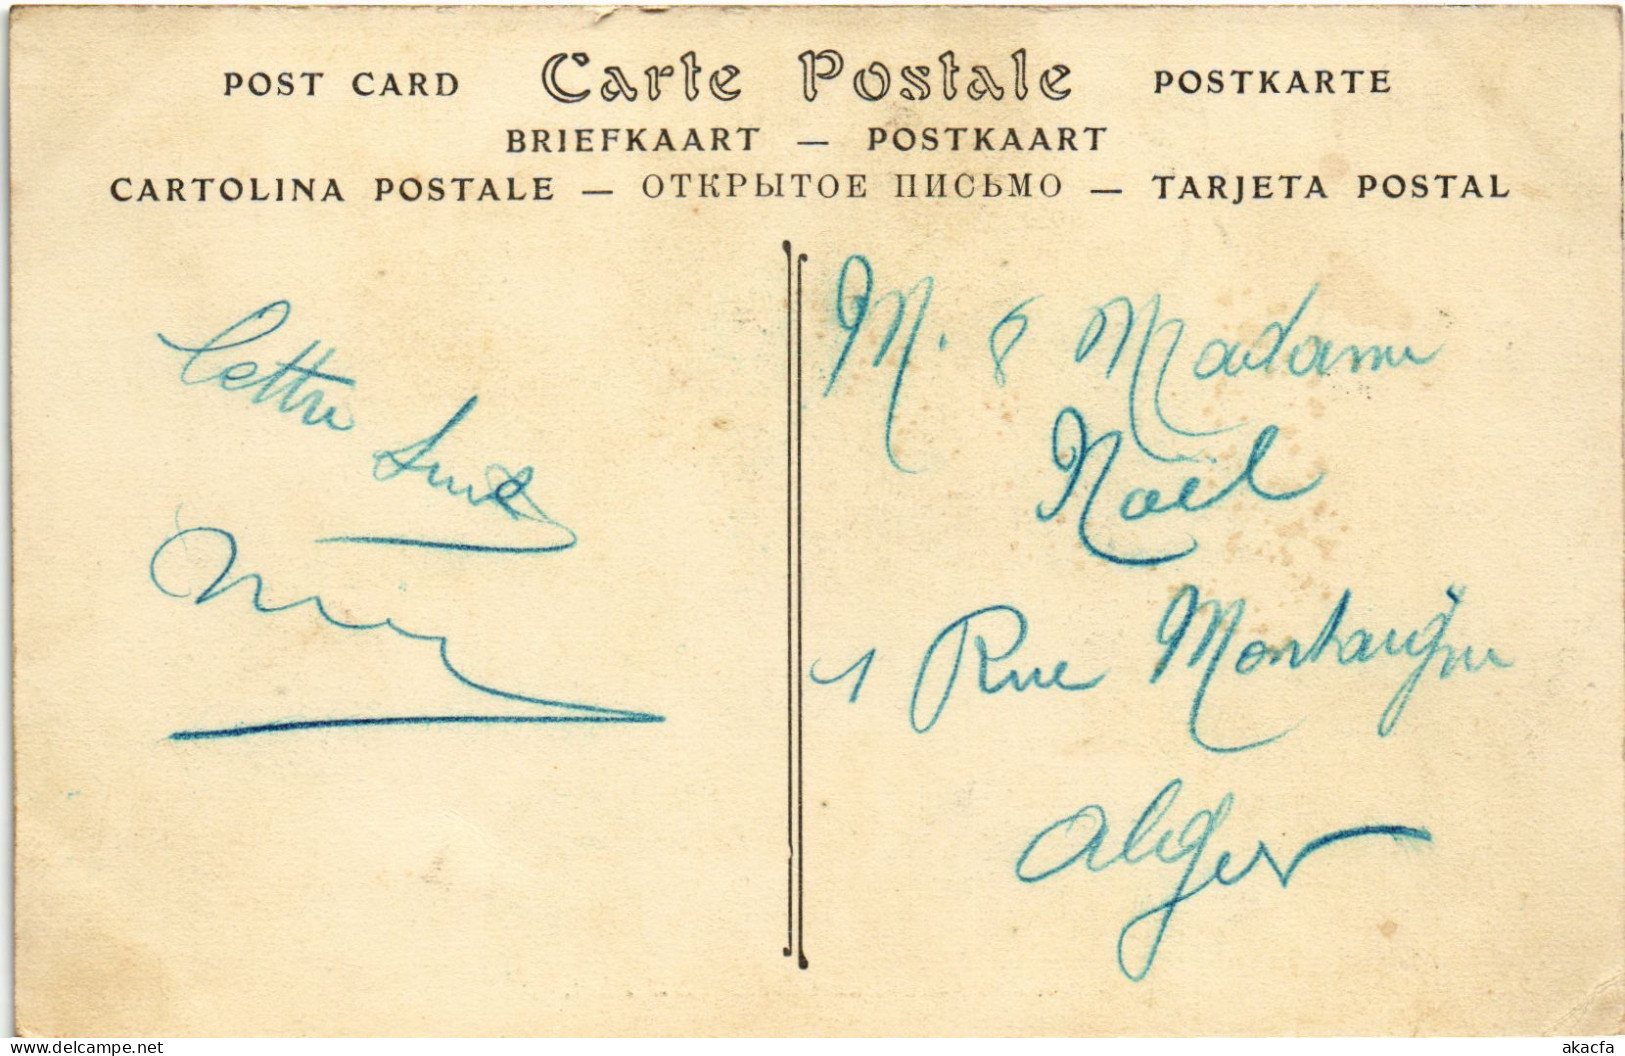 POST CARD Carte Postale POSTKARTE
BRIEFKAART — POSTKAART
CARTOLINA POSTALE — ОТКРЫТОЕ ПИСЬМО — TARJETA POSTAL
Lettre
suit
M. & Madame
Noël
1 Rue Montaigne
Alger
akacfa